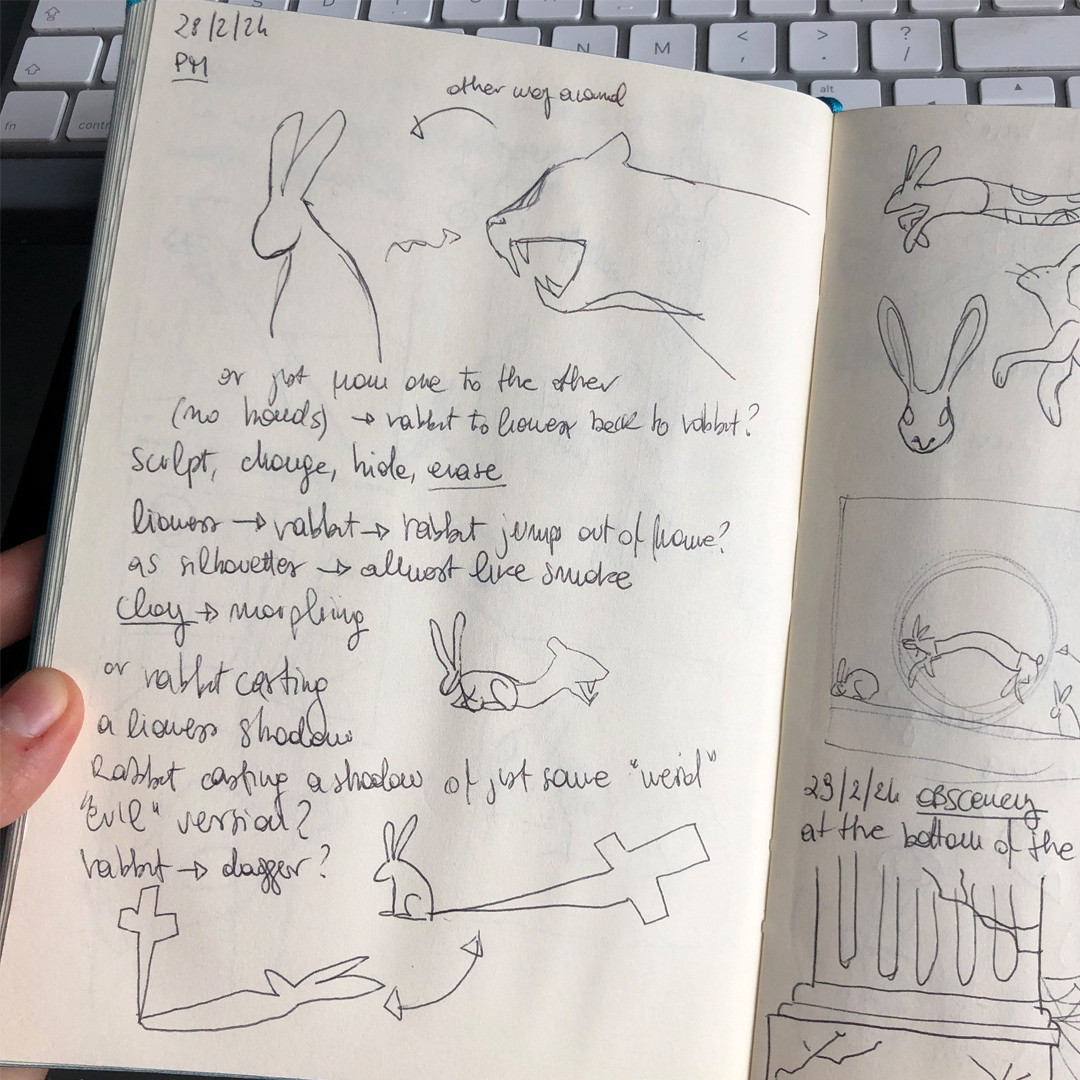 28/2/24
PM
other way around
or just from one to the other
(no hands) → rabbit to lioness back to rabbit?
sculpt, change, hide, erase
lioness → rabbit → rabbit jump out of frame?
as silhouettes → almost like smoke
clay → morphing
or rabbit casting
a lioness shadow
Rabbit casting a shadow of just some "weird"
"evil" version?
rabbit → dagger?
29/2/24 obscenery
at the bottom of the
fn
contr
N
M
<
,
>
.
?
/
alt